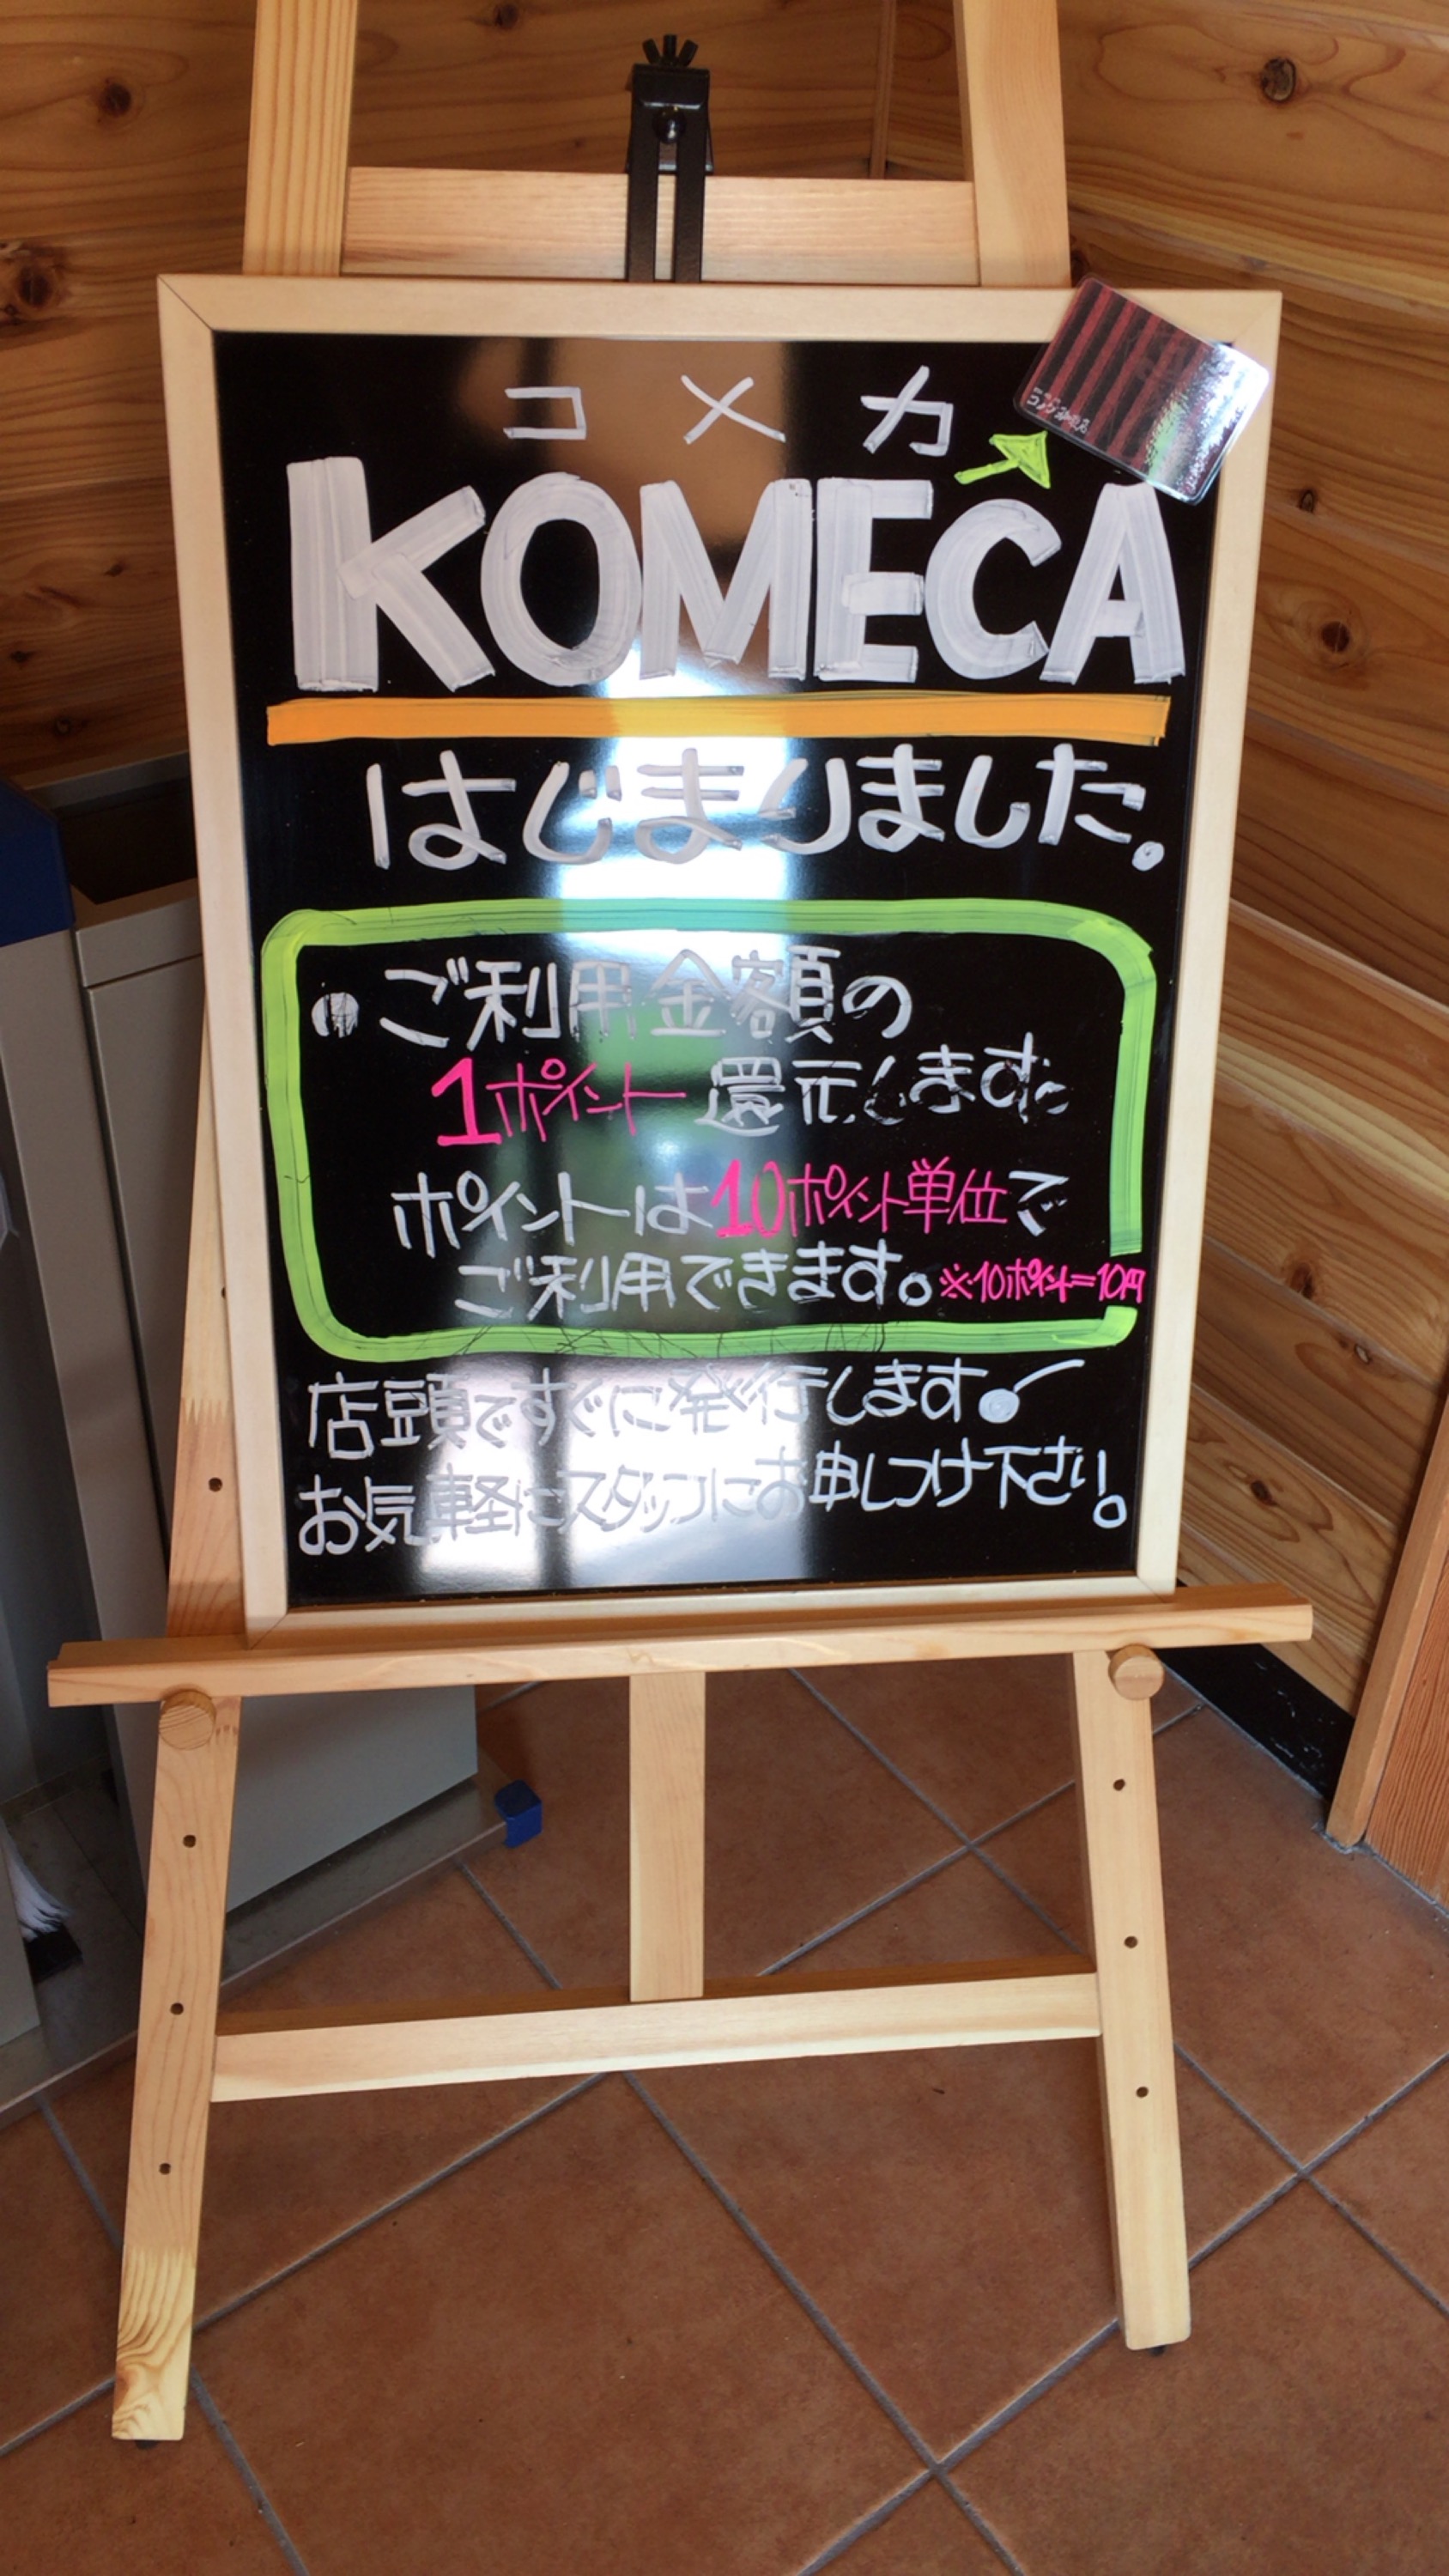 コメカ
KOMECA
はじまりました。
● ご利用金額の
1ポイント 還元します。
ポイントは10ポイント単位で
ご利用できます。※10ポイント=10円
店頭ですぐに発行します!
お気軽にスタッフにお申しつけ下さい。